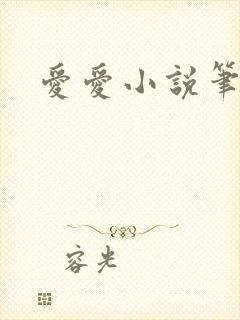 愛愛小説筆
容光